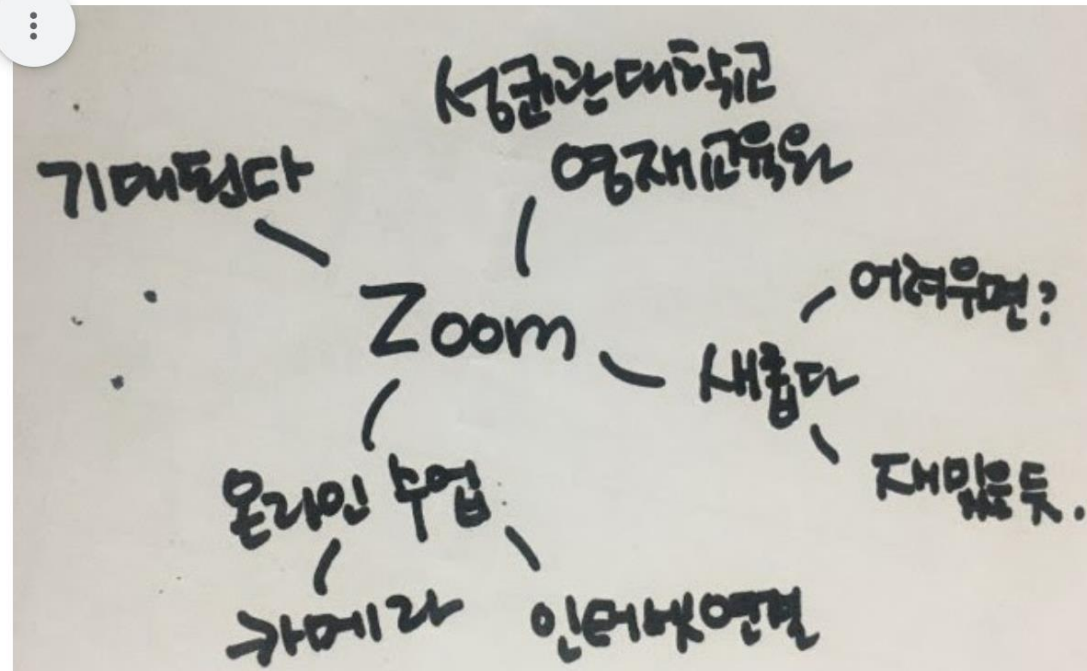 성균관대학교
영재교육원
기대된다
Zoom
어려우면?
새롭다
재밌을듯.
온라인 수업
카메라
인터넷연결